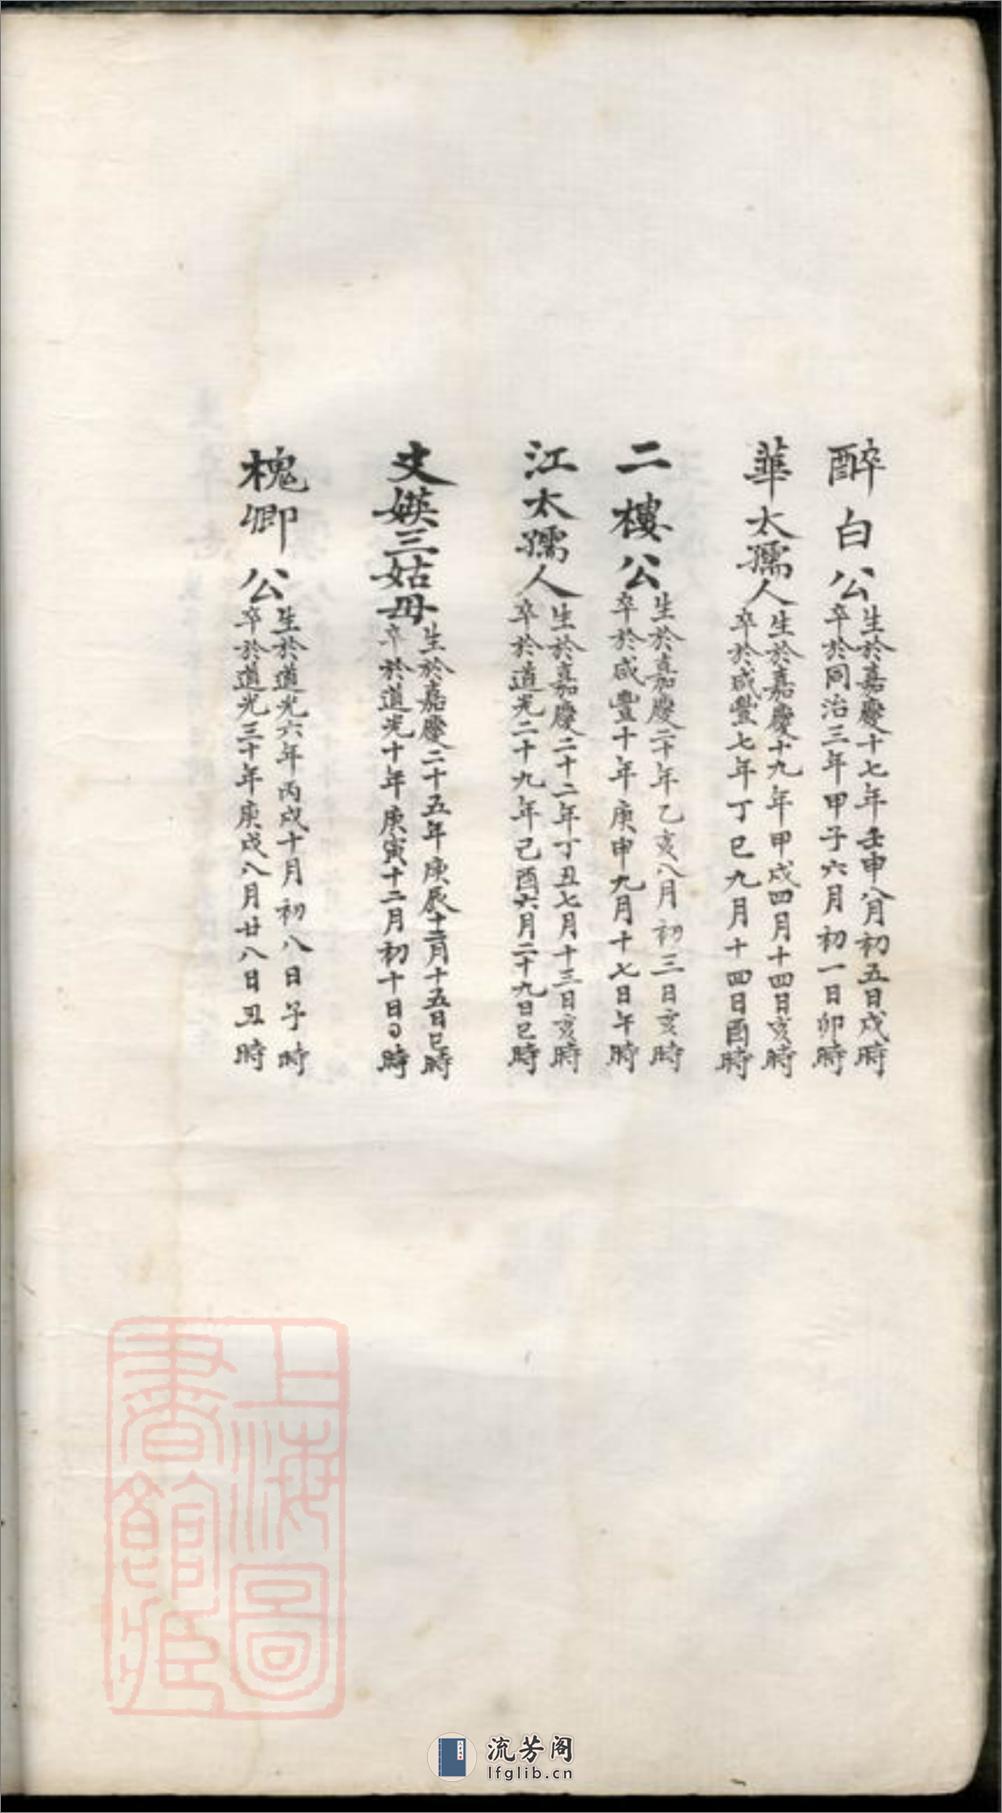 醉白公
生於嘉慶十七年壬申八月初五日戌時
卒於同治三年甲子六月初一日卯時
華太孺人
生於嘉慶十九年甲戌四月十四日亥時
卒於咸豐七年丁巳九月十四日酉時
二樓公
生於嘉慶二十年乙亥八月初三日亥時
卒於咸豐十年庚申九月十七日午時
江太孺人
生於嘉慶二十二年丁丑七月十三日亥時
卒於道光二十九年己酉六月二十九日巳時
文媖三姑母
生於嘉慶二十五年庚辰十二月十五日巳時
卒於道光十年庚寅十二月初十日 時
槐卿公
生於道光六年丙戌十月初八日子時
卒於道光三十年庚戌八月廿八日丑時
上海圖
書館藏
流芳阁
lfglib.cn